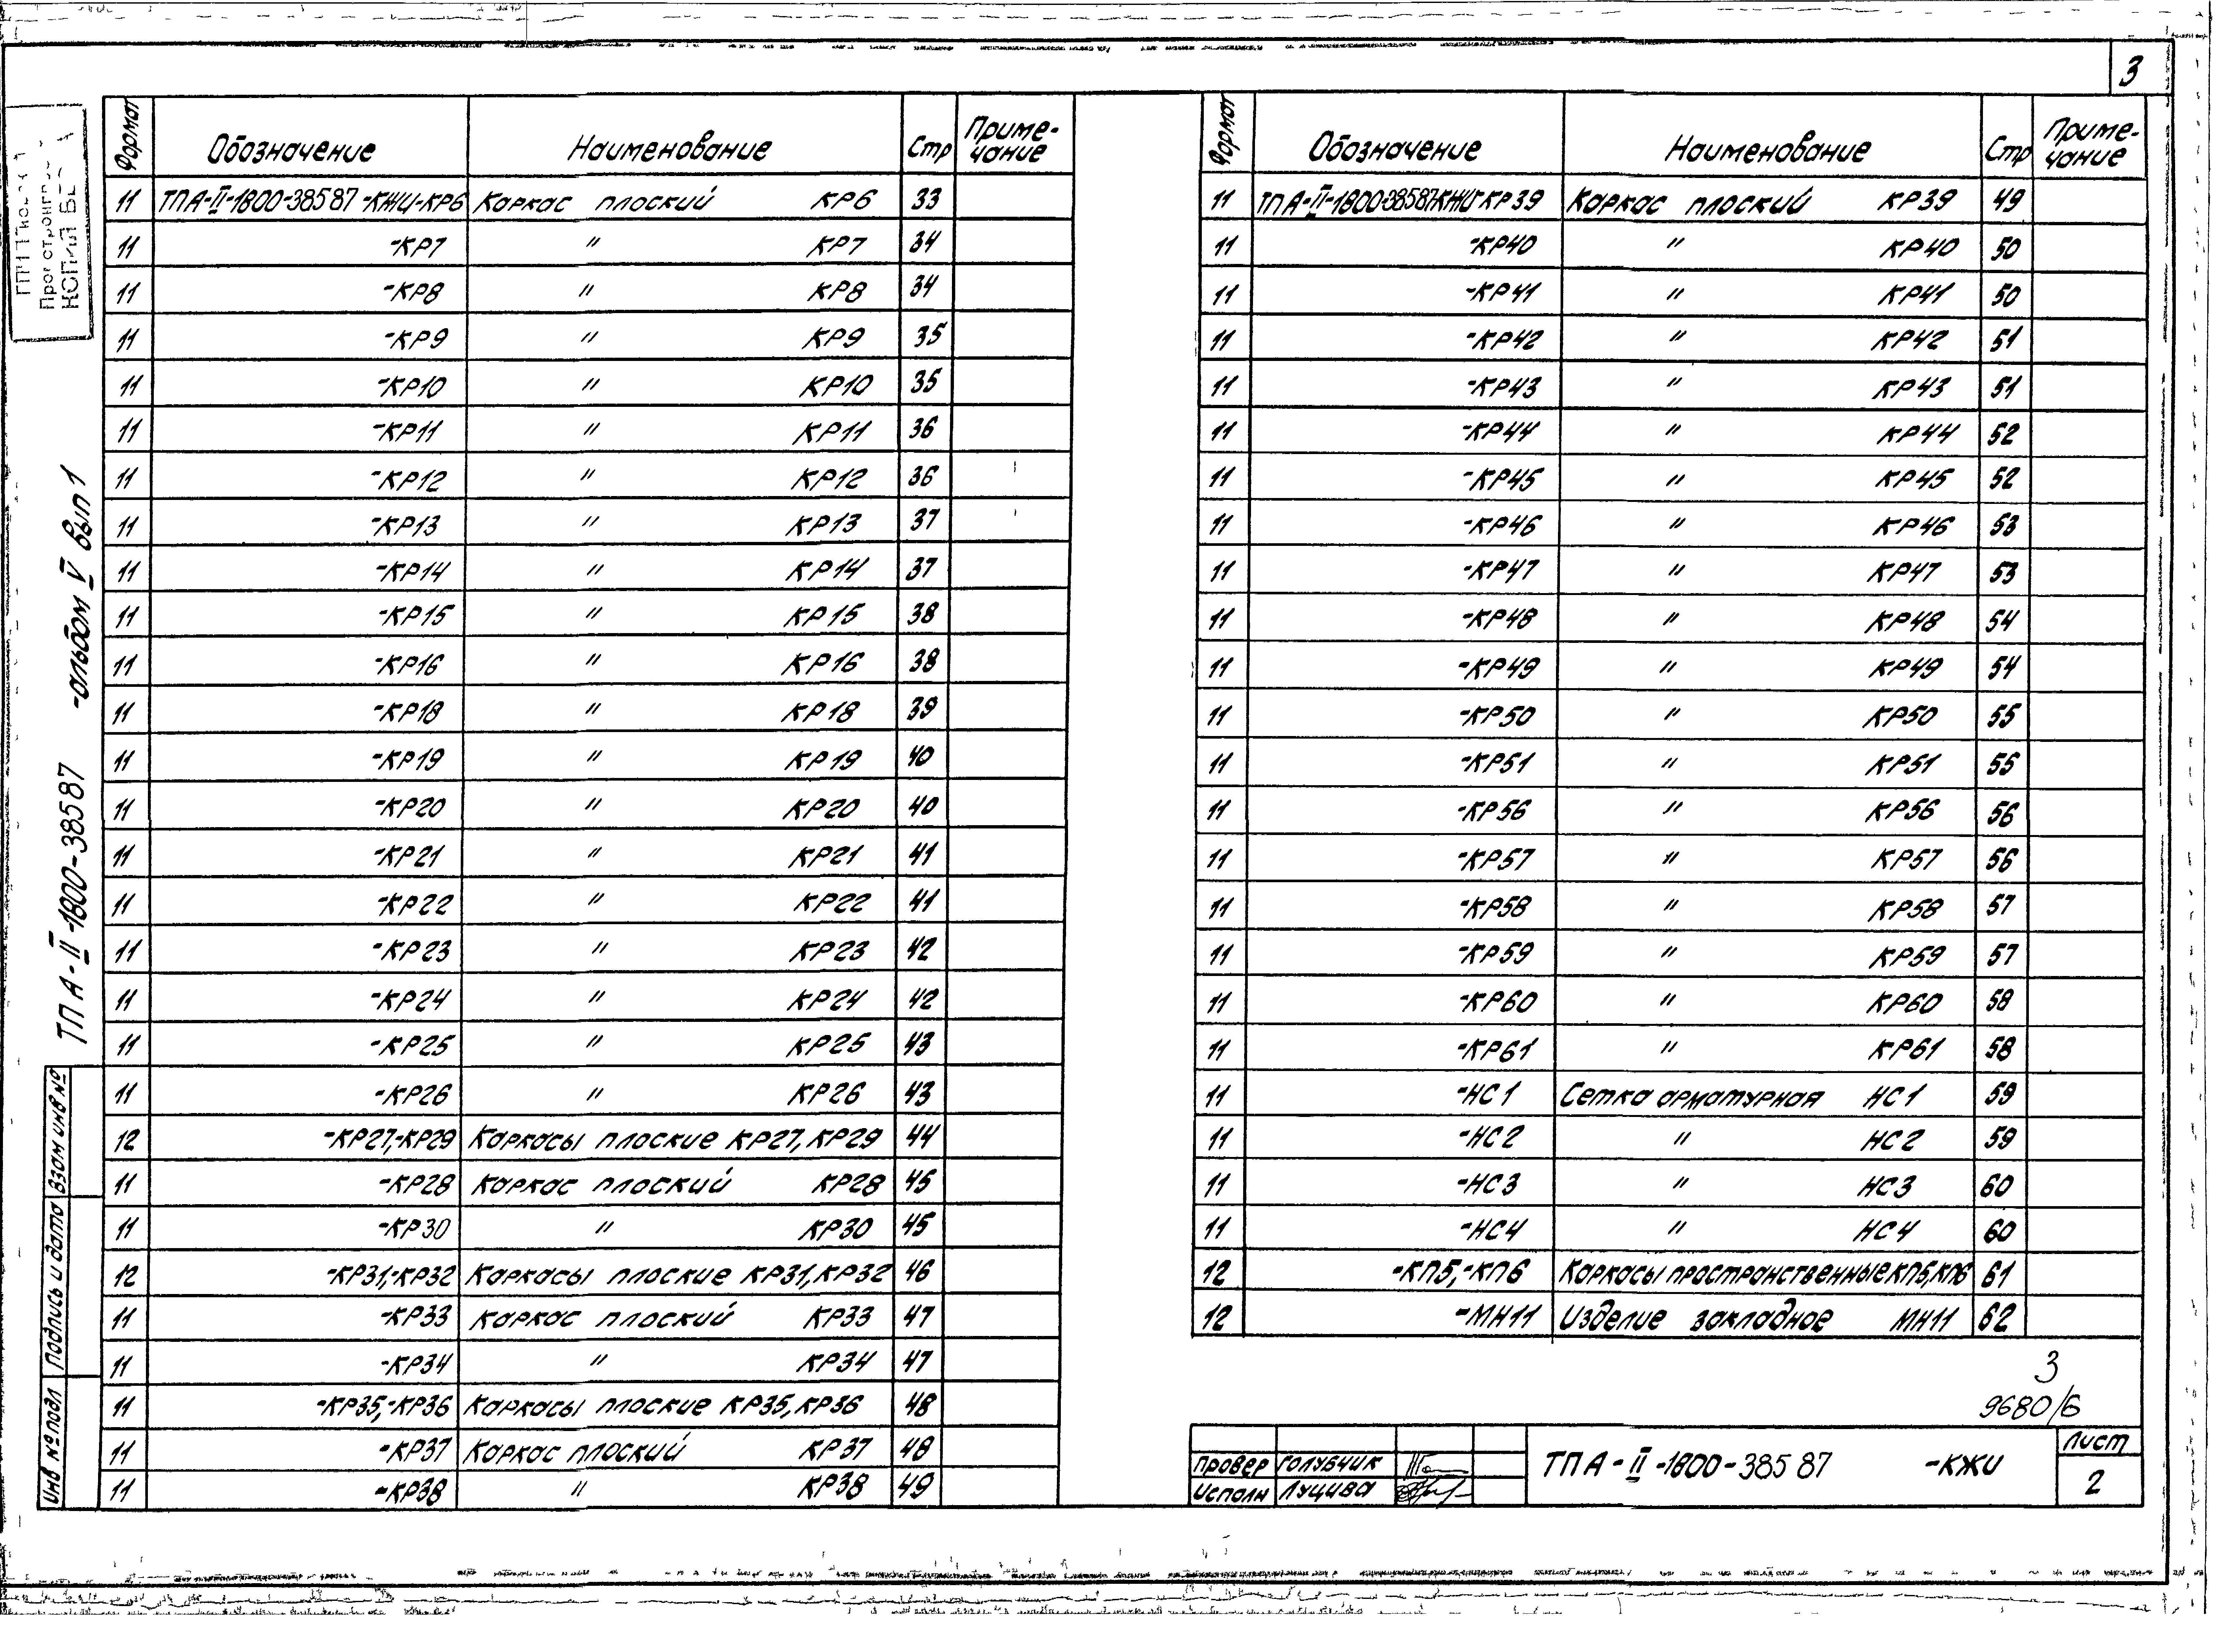 3
Формат Обозначение Наименование Стр Приме-чание
11 ТПА-II-1800-38587-КЖИ-КР6 Каркас плоский КР6 33
11 -КР7 " КР7 34
11 -КР8 " КР8 34
11 -КР9 " КР9 35
11 -КР10 " КР10 35
11 -КР11 " КР11 36
11 -КР12 " КР12 36
11 -КР13 " КР13 37
11 -КР14 " КР14 37
11 -КР15 " КР15 38
11 -КР16 " КР16 38
11 -КР18 " КР18 39
11 -КР19 " КР19 40
11 -КР20 " КР20 40
11 -КР21 " КР21 41
11 -КР22 " КР22 41
11 -КР23 " КР23 42
11 -КР24 " КР24 42
11 -КР25 " КР25 43
11 -КР26 " КР26 43
12 -КР27,-КР29 Каркасы плоские КР27, КР29 44
11 -КР28 Каркас плоский КР28 45
11 -КР30 " КР30 45
12 -КР31,-КР32 Каркасы плоские КР31, КР32 46
11 -КР33 Каркас плоский КР33 47
11 -КР34 " КР34 47
11 -КР35,-КР36 Каркасы плоские КР35, КР36 48
11 -КР37 Каркас плоский КР37 48
11 -КР38 " КР38 49
Формат Обозначение Наименование Стр Приме-чание
11 ТПА-II-1800-38587-КЖИ-КР39 Каркас плоский КР39 49
11 -КР40 " КР40 50
11 -КР41 " КР41 50
11 -КР42 " КР42 51
11 -КР43 " КР43 51
11 -КР44 " КР44 52
11 -КР45 " КР45 52
11 -КР46 " КР46 53
11 -КР47 " КР47 53
11 -КР48 " КР48 54
11 -КР49 " КР49 54
11 -КР50 " КР50 55
11 -КР51 " КР51 55
11 -КР56 " КР56 56
11 -КР57 " КР57 56
11 -КР58 " КР58 57
11 -КР59 " КР59 57
11 -КР60 " КР60 58
11 -КР61 " КР61 58
11 -НС1 Сетка арматурная НС1 59
11 -НС2 " НС2 59
11 -НС3 " НС3 60
11 -НС4 " НС4 60
12 -КП5,-КП6 Каркасы пространственные КП5, КП6 61
12 -МН11 Изделие закладное МН11 62
3
9680/6
Провер Голубчик
Исполн Луцива
ТПА-II-1800-38587 -КЖИ
Лист
2
ТПА-II-1800-38587 -альбом V вып 1
Инв №подл Подпись и дата Взам инв №